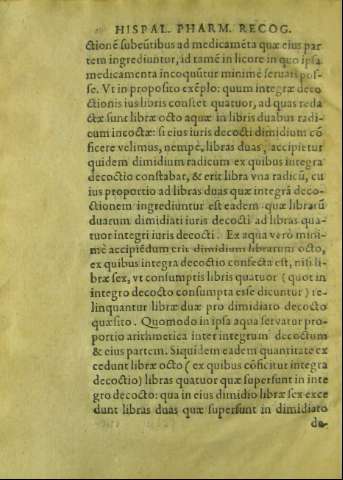 HISPAL. PHARM. RECOG.
ctionē subeūtibus ad medicamēta quæ eius par
tem ingrediuntur, id tamē in licore in quo ipsa
medicamenta incoquūtur minimè seruari pos-
se. Vt in proposito exēplo: quum integræ deco
ctionis ius libris constet quatuor, ad quas reda
ctæ sunt libræ octo aquæ in libris duabus radi-
cum incoctæ: si eius iuris decocti dimidium cō
ficere velimus, nempè, libras duas, accipietur
quidem dimidium radicum ex quibus integra
decoctio constabat, & erit libra vna radicū, cu
ius proportio ad libras duas quæ integrā deco-
ctionem ingrediuntur est eadem quæ librarū
duarum dimidiati iuris decocti ad libras qua-
tuor integri iuris decocti. Ex aqua verò mini-
mè accipiēdum erit dimidium librarum octo,
ex quibus integra decoctio confecta est, nisi li-
bræ sex, vt consumptis libris quatuor (quot in
integro decocto consumpta esse dicuntur) re-
linquantur libræ duæ pro dimidiato decocto
quæsito. Quomodo in ipsa aqua seruatur pro-
portio arithmetica inter integrum decoctum
& eius partem. Siquidem eadem quantitate ex
cedunt libræ octo (ex quibus cōficitur integra
decoctio) libras quatuor quæ supersunt in inte
gro decocto: qua in eius dimidio libræ sex exce
dunt libras duas quæ supersunt in dimidiato
de-